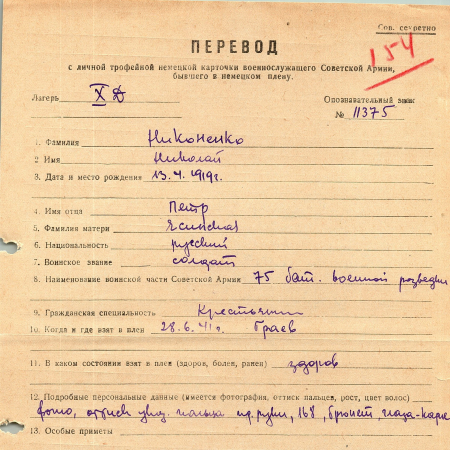 Сов. секретно
154
ПЕРЕВОД
с личной трофейной немецкой карточки военнослужащего Советской Армии,
бывшего в немецком плену.
Лагерь X Д
Опознавательный знак
№ 11375
1. Фамилия Никоненко
2. Имя Николай
3. Дата и место рождения 13.4.1919г.
4. Имя отца Петр
5. Фамилия матери
6. Национальность русский
7. Воинское звание солдат
8. Наименование воинской части Советской Армии 75 бат. военной разведки
9. Гражданская специальность Крестьянин
10. Когда и где взят в плен 28.6.41г. Граев
11. В каком состоянии взят в плен (здоров, болен, ранен) здоров
12. Подробные персональные данные (имеется фотография, оттиск пальцев, рост, цвет волос)
фото, оттиск указ. пальца пр. руки, 168, брюнет, глаза-карие
13. Особые приметы